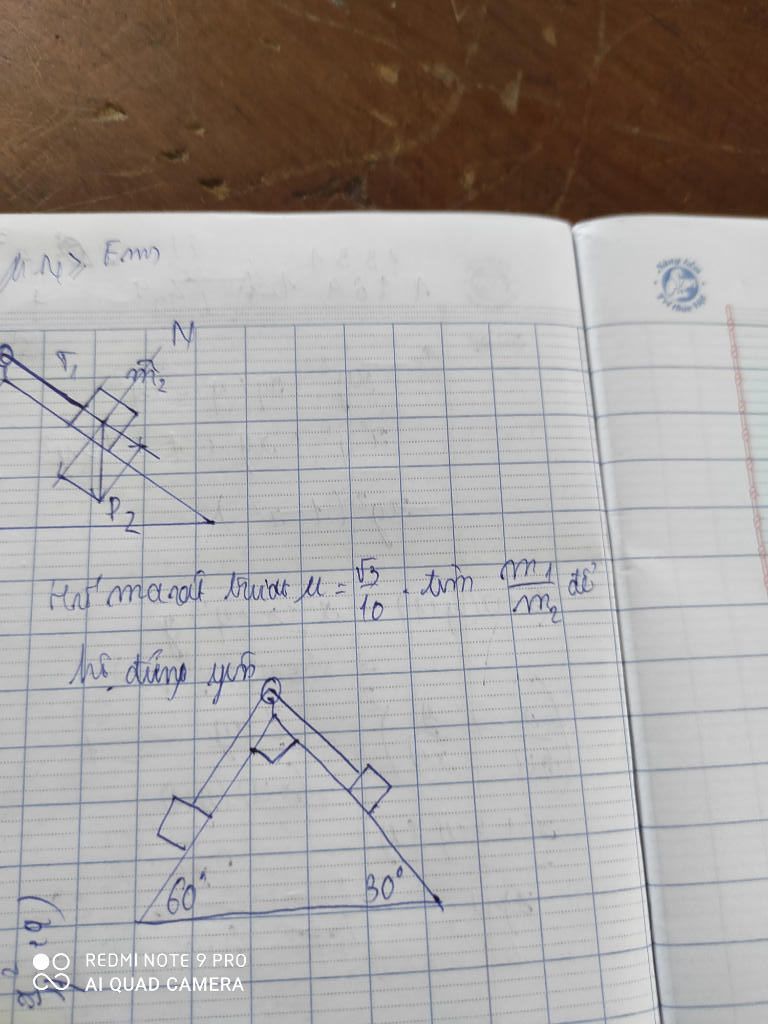 μN₁ > Fms
N
T₁
m₂
P₂
Hs ma sát trượt μ = √3/10 . tìm m₁/m₂ để
hệ đứng yên
60° 30°
REDMI NOTE 9 PRO
AI QUAD CAMERA